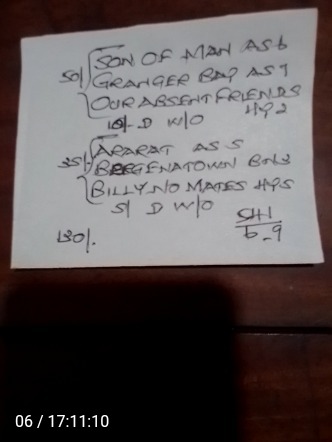 SON OF MAN AS 6
50/ GRANGER BAY AS 7
OUR ABSENT FRIENDS HY 2
10/- D W/O
ARARAT AS 5
35/- BREGENATOWN BN 3
BILLY NO MATES HY 5
5/ D W/O
130/.
SH1
6-9
06 / 17:11:10